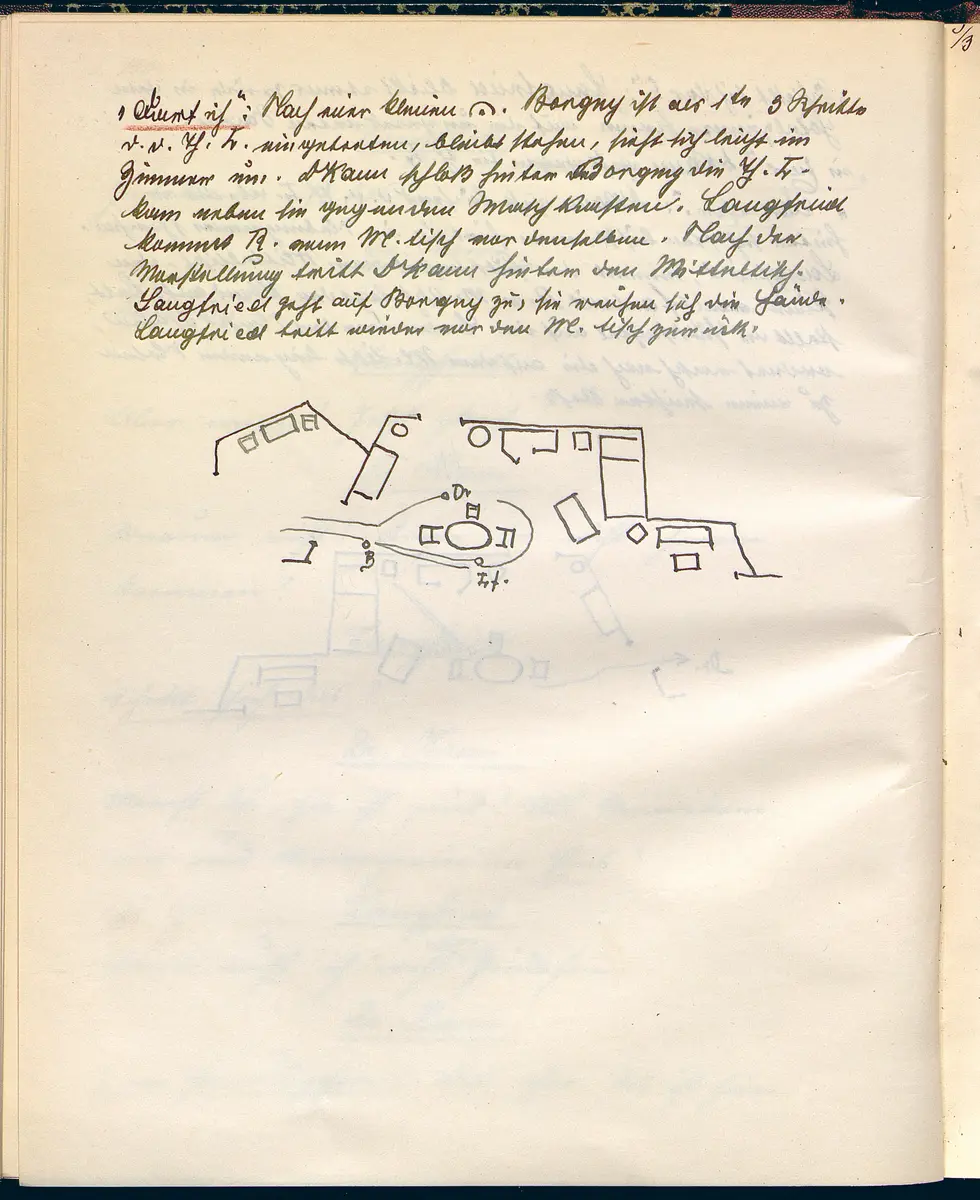 „Darf ich“: Nach einer kleinen 𝄐. Borgny ist als 1te 3 Schritte
v. d. Th. L. eingetreten, bleibt stehen, sieht sich leicht im
Zimmer um. Dkann schloß hinter Borgny die Th. L.
kam neben sie gegen den Waschkasten. Langfried
kommt R. vom M. tisch vor denselben. Nach der
Vorstellung tritt Dkann hinter den Mitteltisch.
Langfried geht auf Borgny zu, sie reichen sich die Hände.
Langfried tritt wieder vor den M. tisch zurück.
Dr
B
Lf.